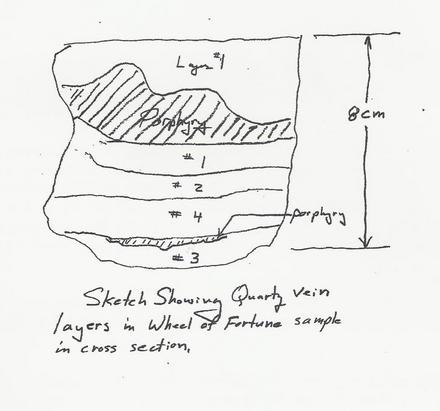 Layer #1
Porphyry
8cm
# 1
# 2
# 4
porphyry
# 3
Sketch Showing Quartz vein
layers in Wheel of Fortune sample
in cross section.